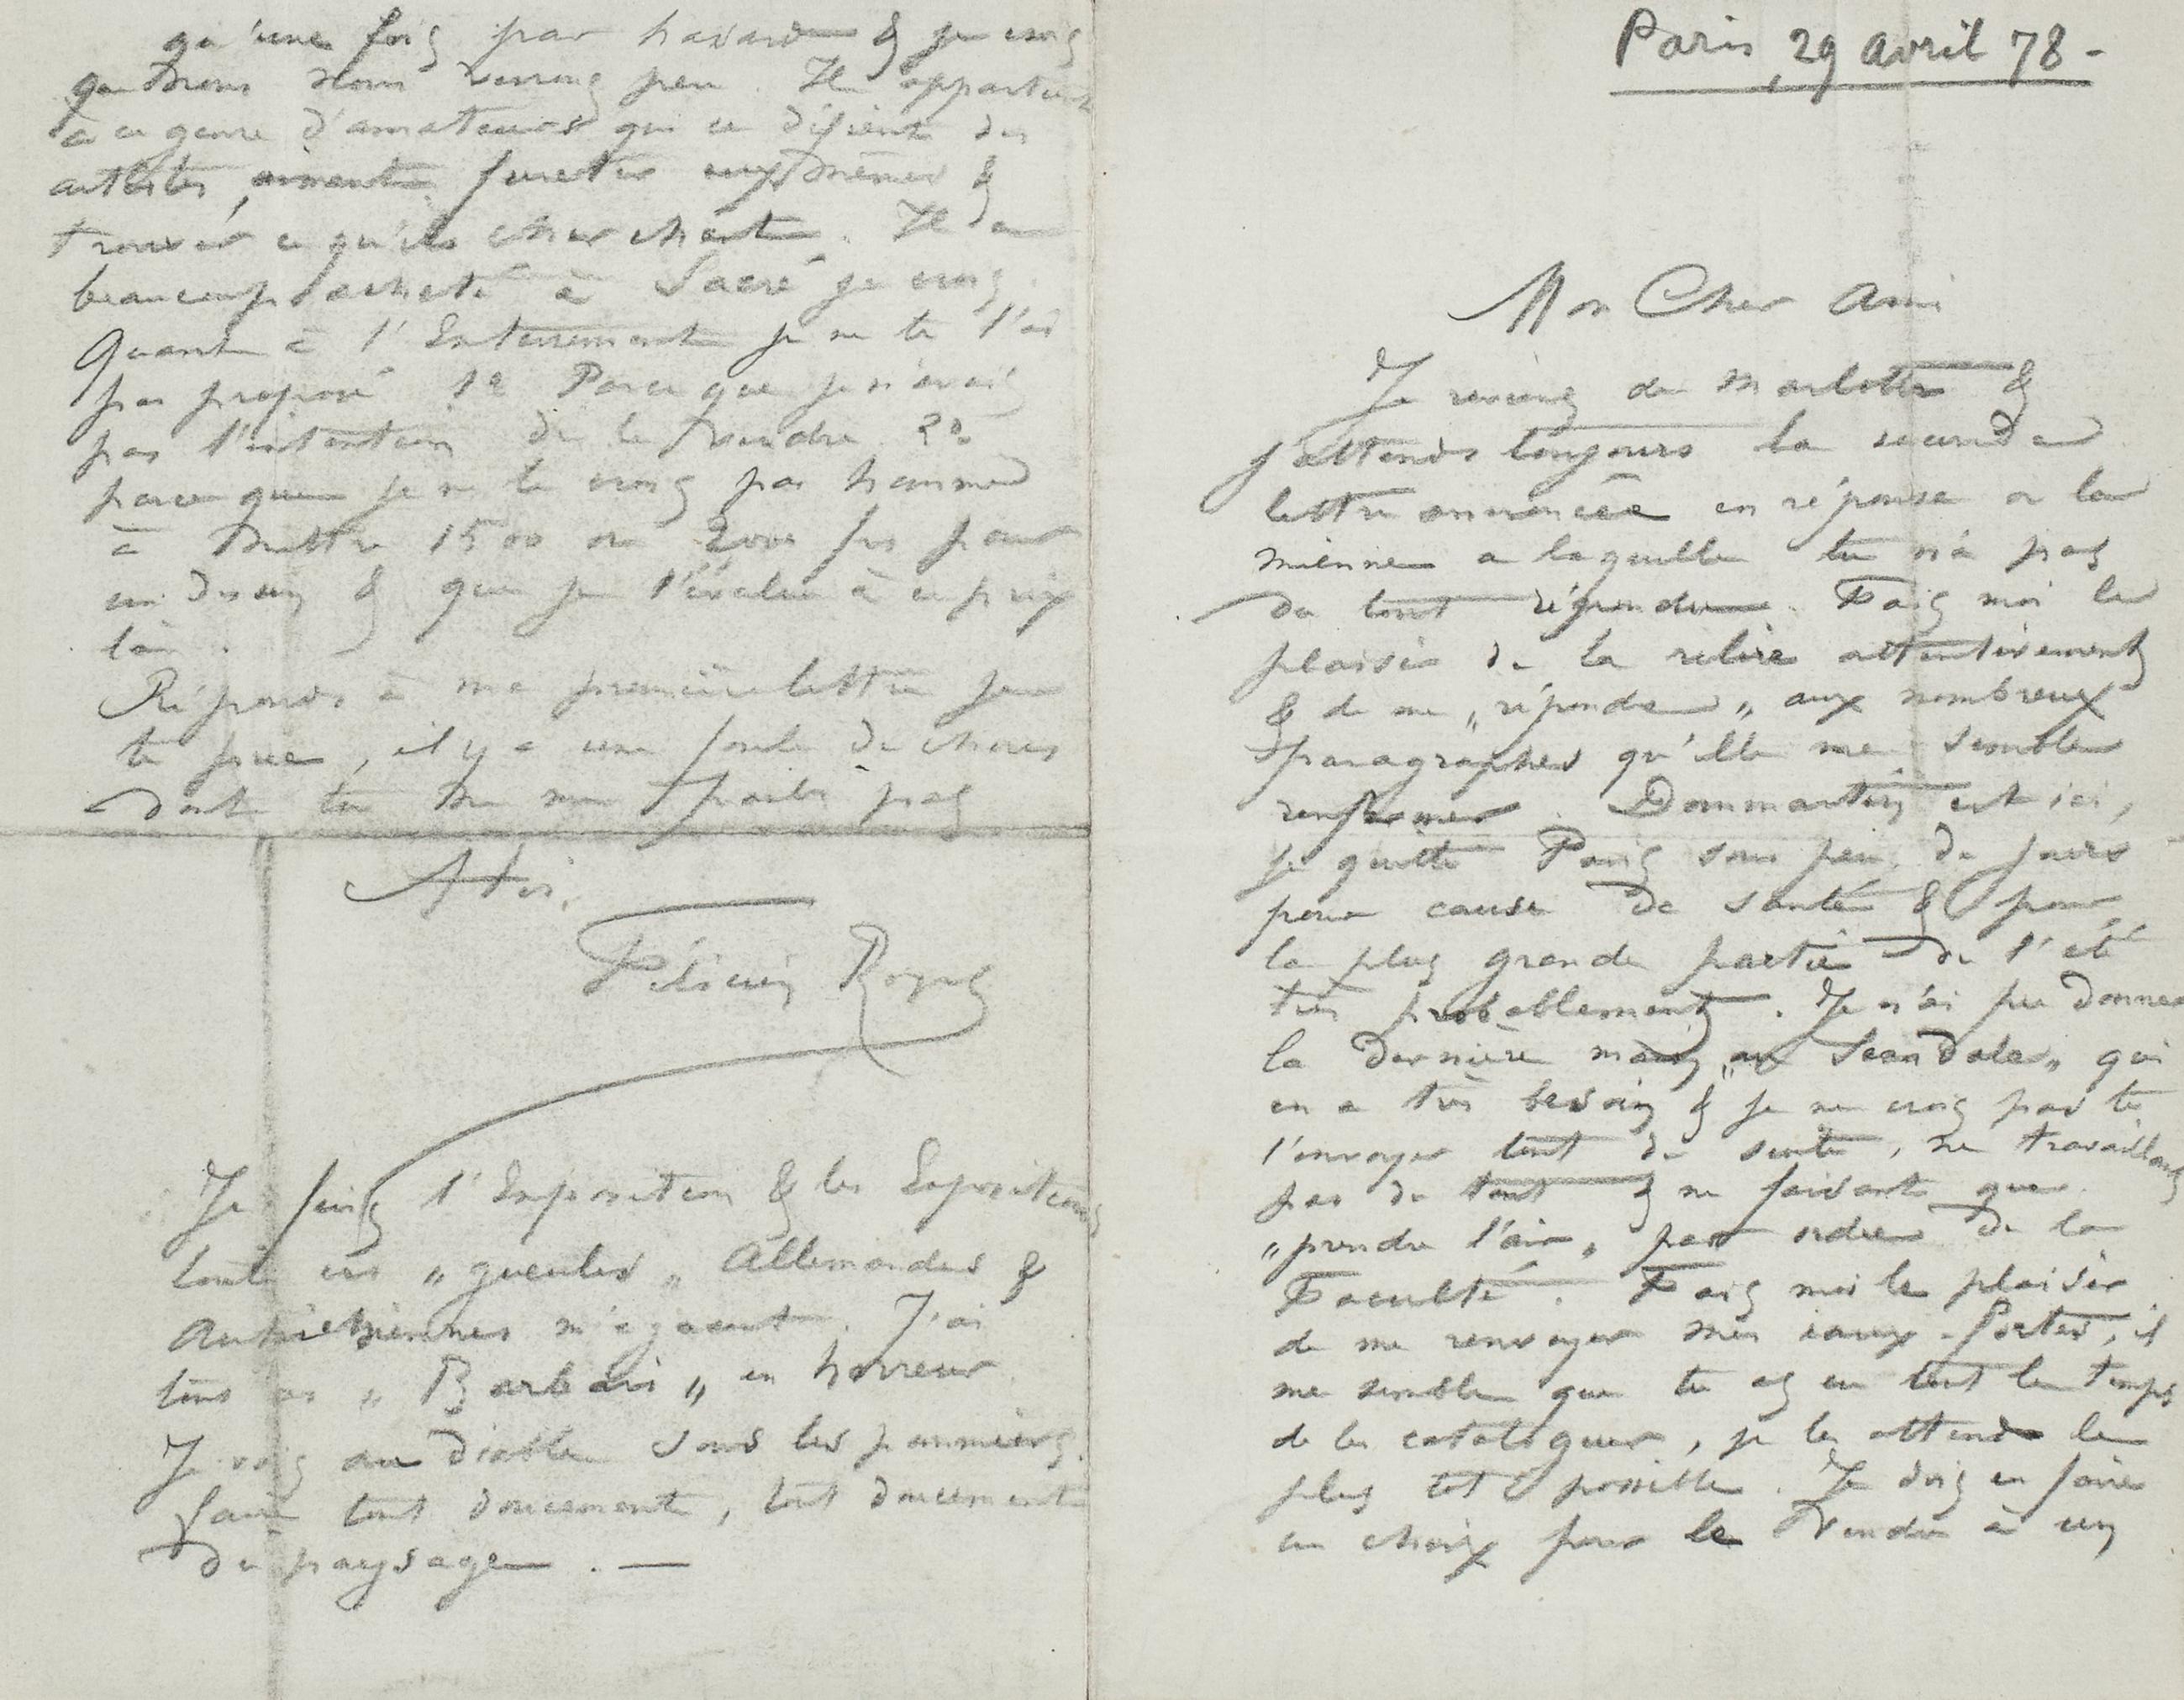 Paris, 29 avril 78-
Mon Cher Ami
Je reviens de Marlotte &
j'attends toujours la seconde
lettre annoncée en réponse a la
mienne a laquelle tu n'a pas
du tout répondu. Fais moi le
plaisir de la relire attentivement
& de me „répondre„ aux nombreux
paragraphes qu'elle me semble
renfermer. Dommartin est ici,
je quitte Paris sous peu de jours
pour cause de santé & pour
la plus grande partie de l'été
très probablement. Je n'ai pu donner
la dernière main „au Scandale„ qui
en a très besoin & je ne crois pas te
l'envoyer tout de suite, ne travaillant
pas du tout & ne faisant que
„prendre l'air„ par ordre de la
Faculté. Fais moi le plaisir
de me renvoyer mes eaux-fortes, il
me semble que tu as eu tout le temps
de les cataloguer, je les attends le
plus tot possible. Je dois en faire
un choix pour le vendre à un
qu'une fois par hasard & je crois
que nous nous verrons peu. Il appartient
à ce genre d'amateurs qui se défient des
artistes, aiment fureter eux mêmes &
trouver ce qu'ils cherchent. Il a
beaucoup acheté à Sacré je crois.
Quant à l'Enterrement je ne te l'ai
pas proposé 1º Parce que je n'avais
pas l'intention de le vendre 2º
parce que je ne te crois pas homme
à mettre 1500 ou 2000 frs pour
un dessin & que je l'évalue à ce prix
là.
Réponds à ma première lettre je
te prie, il y a une foule de choses
dont tu ne me parles pas
A toi,
Félicien Rops
Je fuis l'Exposition & les Expositions
toutes ces „gueules„ Allemandes &
Autrichiennes m'agacent. J'ai
tous ces „Barbares„ en horreur.
Je vais au diable sous les pommiers.
faire tout doucement, tout doucement
du paysage. —